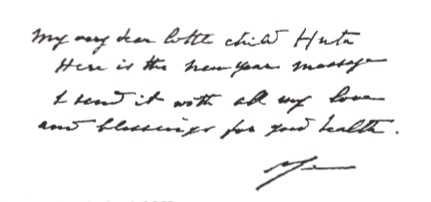 My very dear little child Huta
Here is the new year message
I send it with all my love
and blessings for good health.